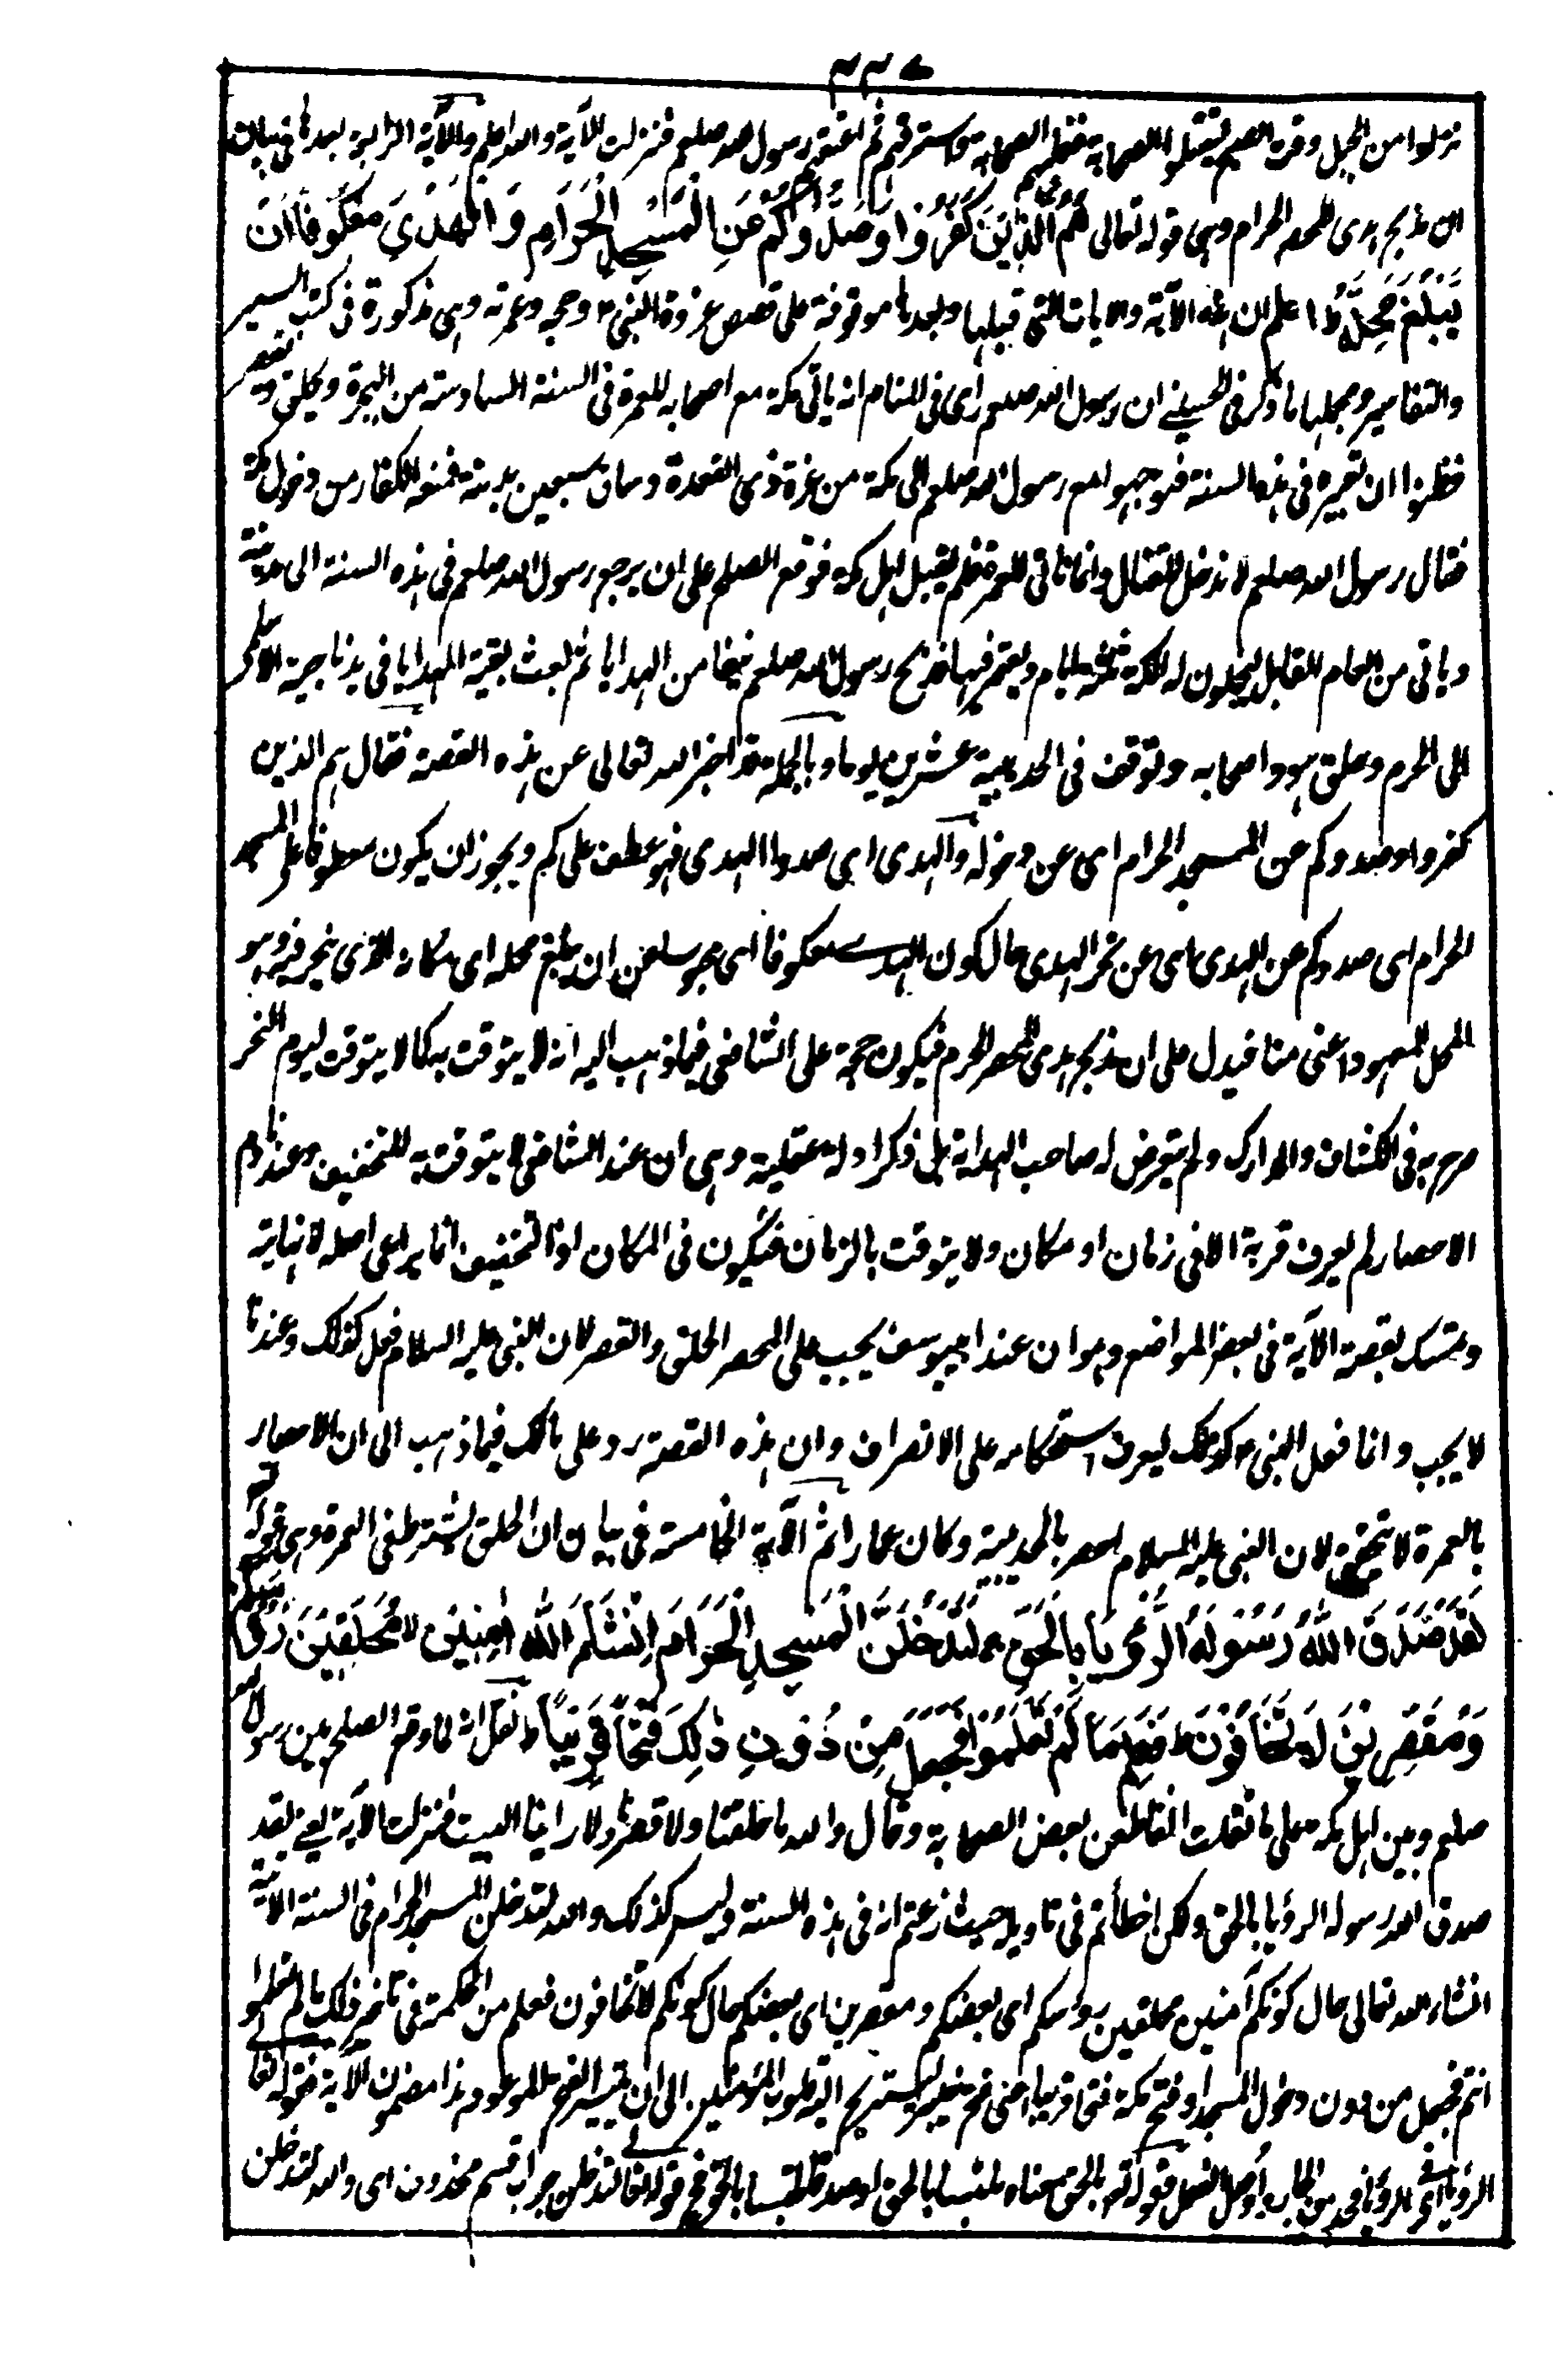 نزلوا من الجبل وقت الصبح ليقتلوا الصحابة فغلب الصحابة واسترقهم ثم اعتقهم رسول الله صلعم فنزلت الآية والله اعلم والآية الرابعة بعدها فى بيان
ان مذبح هدى المحصر الحرام وهى قوله تعالى هُمُ الَّذِيْنَ كَفَرُوْا وَصَدُّوْكُمْ عَنِ الْمَسْجِدِ الْحَرَامِ وَ الْهَدْيَ مَعْكُوْفًا اَنْ
يَّبْلُغَ مَحِلَّهٗ ط اعلم ان هذه الآية والايات التى قبلها وبعدها موقوفة على قصص غزوة النبى ؐ وحجه وعمرته وهى مذكورة فى كتب السير
والتفاسير ومجملها ما ذكر فى الحسينى ان رسول الله صلعم رأى فى المنام انه ياتى مكة مع اصحابه للعمرة فى السنة السادسة من الهجرة ويحلق ويقصر
فظنوا ان تعبيره فى هذه السنة فتوجهوا مع رسول الله صلعم الى مكة من غرة ذى القعدة وساق سبعين بدنة فمنعه الكفار من دخول مكة
فقال رسول الله صلعم لا ندخل للقتال وانما ناتى للعمرة فلم يقبل اهل مكة فوقع الصلح على ان يرجع رسول الله صلعم فى هذه السنة الى مدينة
وياتى من العام المقابل يخلون له مكة ثلثة ايام ويعتمر فيها فذبح رسول الله صلعم من الهدايا ثم بعث بقية الهدايا فى يد ناجية الاسلمى
الى الحرم وحلق هو واصحابه وتوقف فى الحديبية عشرين يوما وبالجملة قد اخبر الله تعالى عن هذه القصة فقال هم الذين
كفروا وصدوكم عن المسجد الحرام اى عن دخوله والهدى اى صدوا الهدى فهو عطف على كم ويجوز ان يكون معطوفا على المسجد
الحرام اى صدوكم عن الهدى اى عن نحر الهدى حال كون الهدى معكوفا اى محبوسا عن ان يبلغ محله اى مكانه الذى ينحر فيه وهو
المحل المعهود اعنى منا فيدل على ان مذبح هدى المحصر الحرم فيكون حجة على الشافعى فيما ذهب اليه انه لا يتوقت به كما لا يتوقت ليوم النحر
صرح به فى الكشاف والمدارك ولم يتعرض له صاحب الهداية بل ذكر ادلة عقلية وهى ان عند الشافعى لا يتوقت به للتخفيف وعندنا دم
الاحصار لم يعرف قربة الا فى زمان او مكان ولا يتوقت بالزمان فيكون فى المكان اذ التخفيف انما يراعى اصله لا نهايته
وتمسك بقصة الآية فى بعض المواضع وهو ان عند ابى يوسف يجب على المحصر الحلق والقصر لان النبى عليه السلام فعل كذلك وعندنا
لا يجب وانما فعل النبى ؐ كذلك ليعرف استحكامه على الانصراف وان هذه القصة رد على مالك فيما ذهب الى ان الاحصار
بالعمرة لا تتحقق لان النبى عليه السلام احصر بالحديبية وكان عمارا ثم الآية الخامسة فى بيان ان الحلق يشترط فى العمرة وهى قوله تعالى
لَقَدْ صَدَقَ اللّٰهُ رَسُوْلَهُ الرُّءْيَا بِالْحَقِّ ج لَتَدْخُلُنَّ الْمَسْجِدَ الْحَرَامَ اِنْشَآءَ اللّٰهُ اٰمِنِيْنَ لا مُحَلِّقِيْنَ رُءُوْسَكُمْ
وَمُقَصِّرِيْنَ لَا تَخَافُوْنَ ط فَعَلِمَ مَا لَمْ تَعْلَمُوْا فَجَعَلَ مِنْ دُوْنِ ذٰلِكَ فَتْحًا قَرِيْبًا ط نقل انه لما وقع الصلح بين رسول الله
صلعم وبين اهل مكة على ما نقلت انفا طعن بعض الصحابة وقال والله ما حلقنا ولا قصرنا ولا راينا البيت فنزلت الآية يعنى لقد
صدق الله رسوله الرؤيا بالحق ولكن اخطأتم فى تاويله حيث زعتم انه فى هذه السنة وليس كذلك والله لتدخلن المسجد الحرام فى السنة الاتية
انشاء الله تعالى حال كونكم آمنين محلقين رءوسكم اى بعضكم ومقصرين اى بعضكم حال كونكم لا تخافون فعلم من الحكمة فى تاخير ذلك ما لم تعلموا
انتم فجعل من دون دخول المسجد او فتح مكة فتحا قريبا اعنى فتح خيبر ليستريح اليه قلوب المؤمنين الى ان يتيسر الفتح الموعود هذا مضمون الآية فقوله تعالى
الرؤيا اى فى الرؤيا فحذف الجار واوصل الفعل فقوله تع بالحق معناه ملتبسا بالحق او صدقا ملتبسا بالحق وقوله تعالى لتدخلن جواب قسم محذوف اى والله لتدخلن